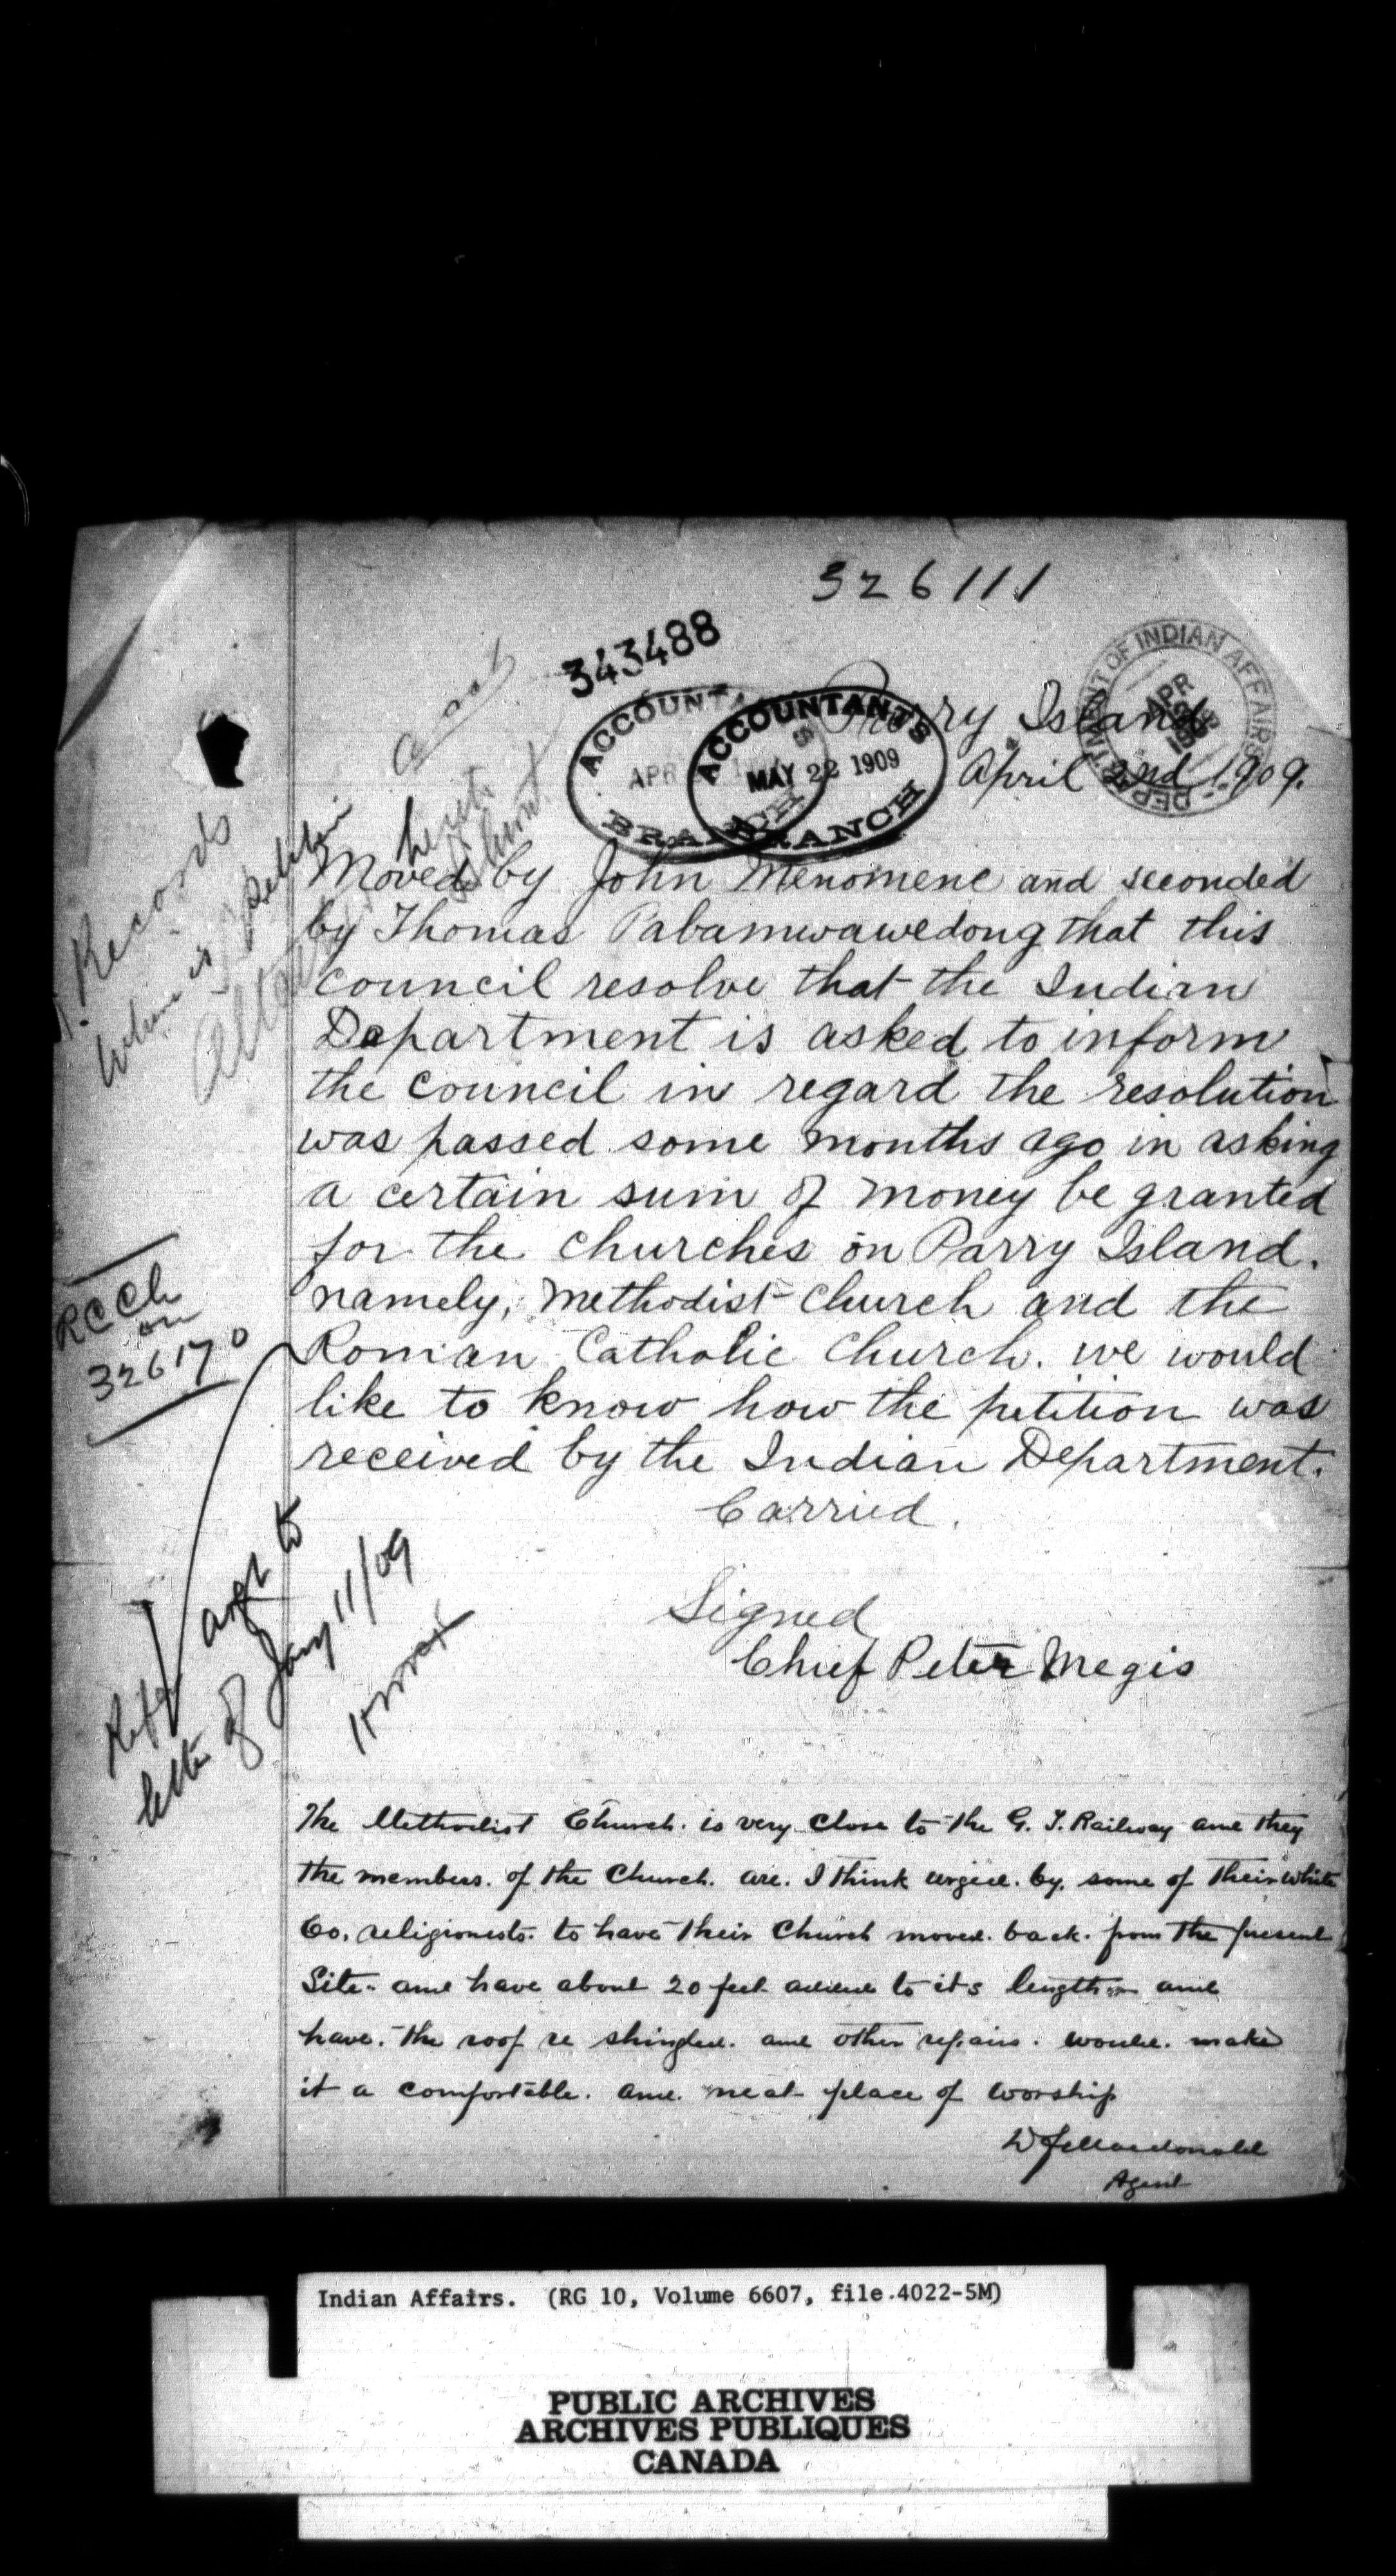 326111
343488
DEPARTMENT OF INDIAN AFFAIRS
APR
ACCOUNTANTS BRANCH
APR
ACCOUNTANTS BRANCH
MAY 22 1909
Parry Island
April 2nd 1909.
Records
where is petition
Moved by John Menomene and seconded
by Thomas Pabamwawedong that this
council resolve that the Indian
Department is asked to inform
the council in regard the resolution
was passed some months ago in asking
a certain sum of money be granted
for the churches on Parry Island.
namely, Methodist church and the
Roman Catholic Church. we would
like to know how the petition was
received by the Indian Department.
Carried.
RCCh
on
326170
Refer agt to
letter of Jany 11/09
Signed
Chief Peter Megis
The Methodist Church. is very close to the G. T. Railway and they
the members. of the Church. are. I think urged. by. some of their white
Co. religionests. to have their Church moved. back. from the present
Site. and have about 20 feet added to its length and
have. the roof re shingled. and other repairs. would. make
it a comfortable. and. neat place of worship
Macdonald
Agent
Indian Affairs. (RG 10, Volume 6607, file 4022-5M)
PUBLIC ARCHIVES
ARCHIVES PUBLIQUES
CANADA